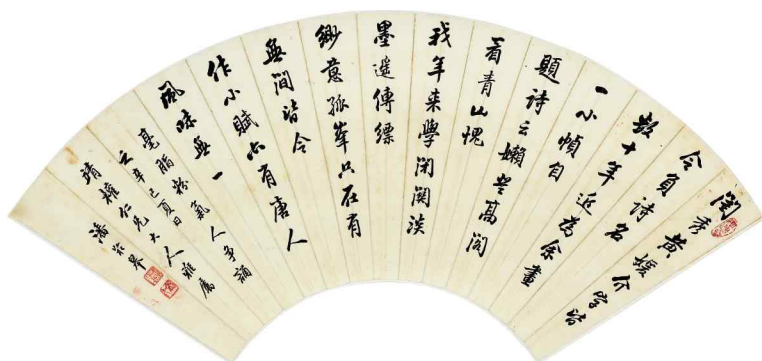 閨秀黄媛介字皆
令負詩名
數十年近為余畫
一小幀自
題詩云嬾登髙阁
看青山愧
我年来學闭關淡
墨遥傳缥
缈意孤峯只在有
無间皆令
作小賦亦有唐人
風味無一
毫脂粉氣人争誦
之辛巳夏日
靖權仁兄大人雅屬
潘齡皋